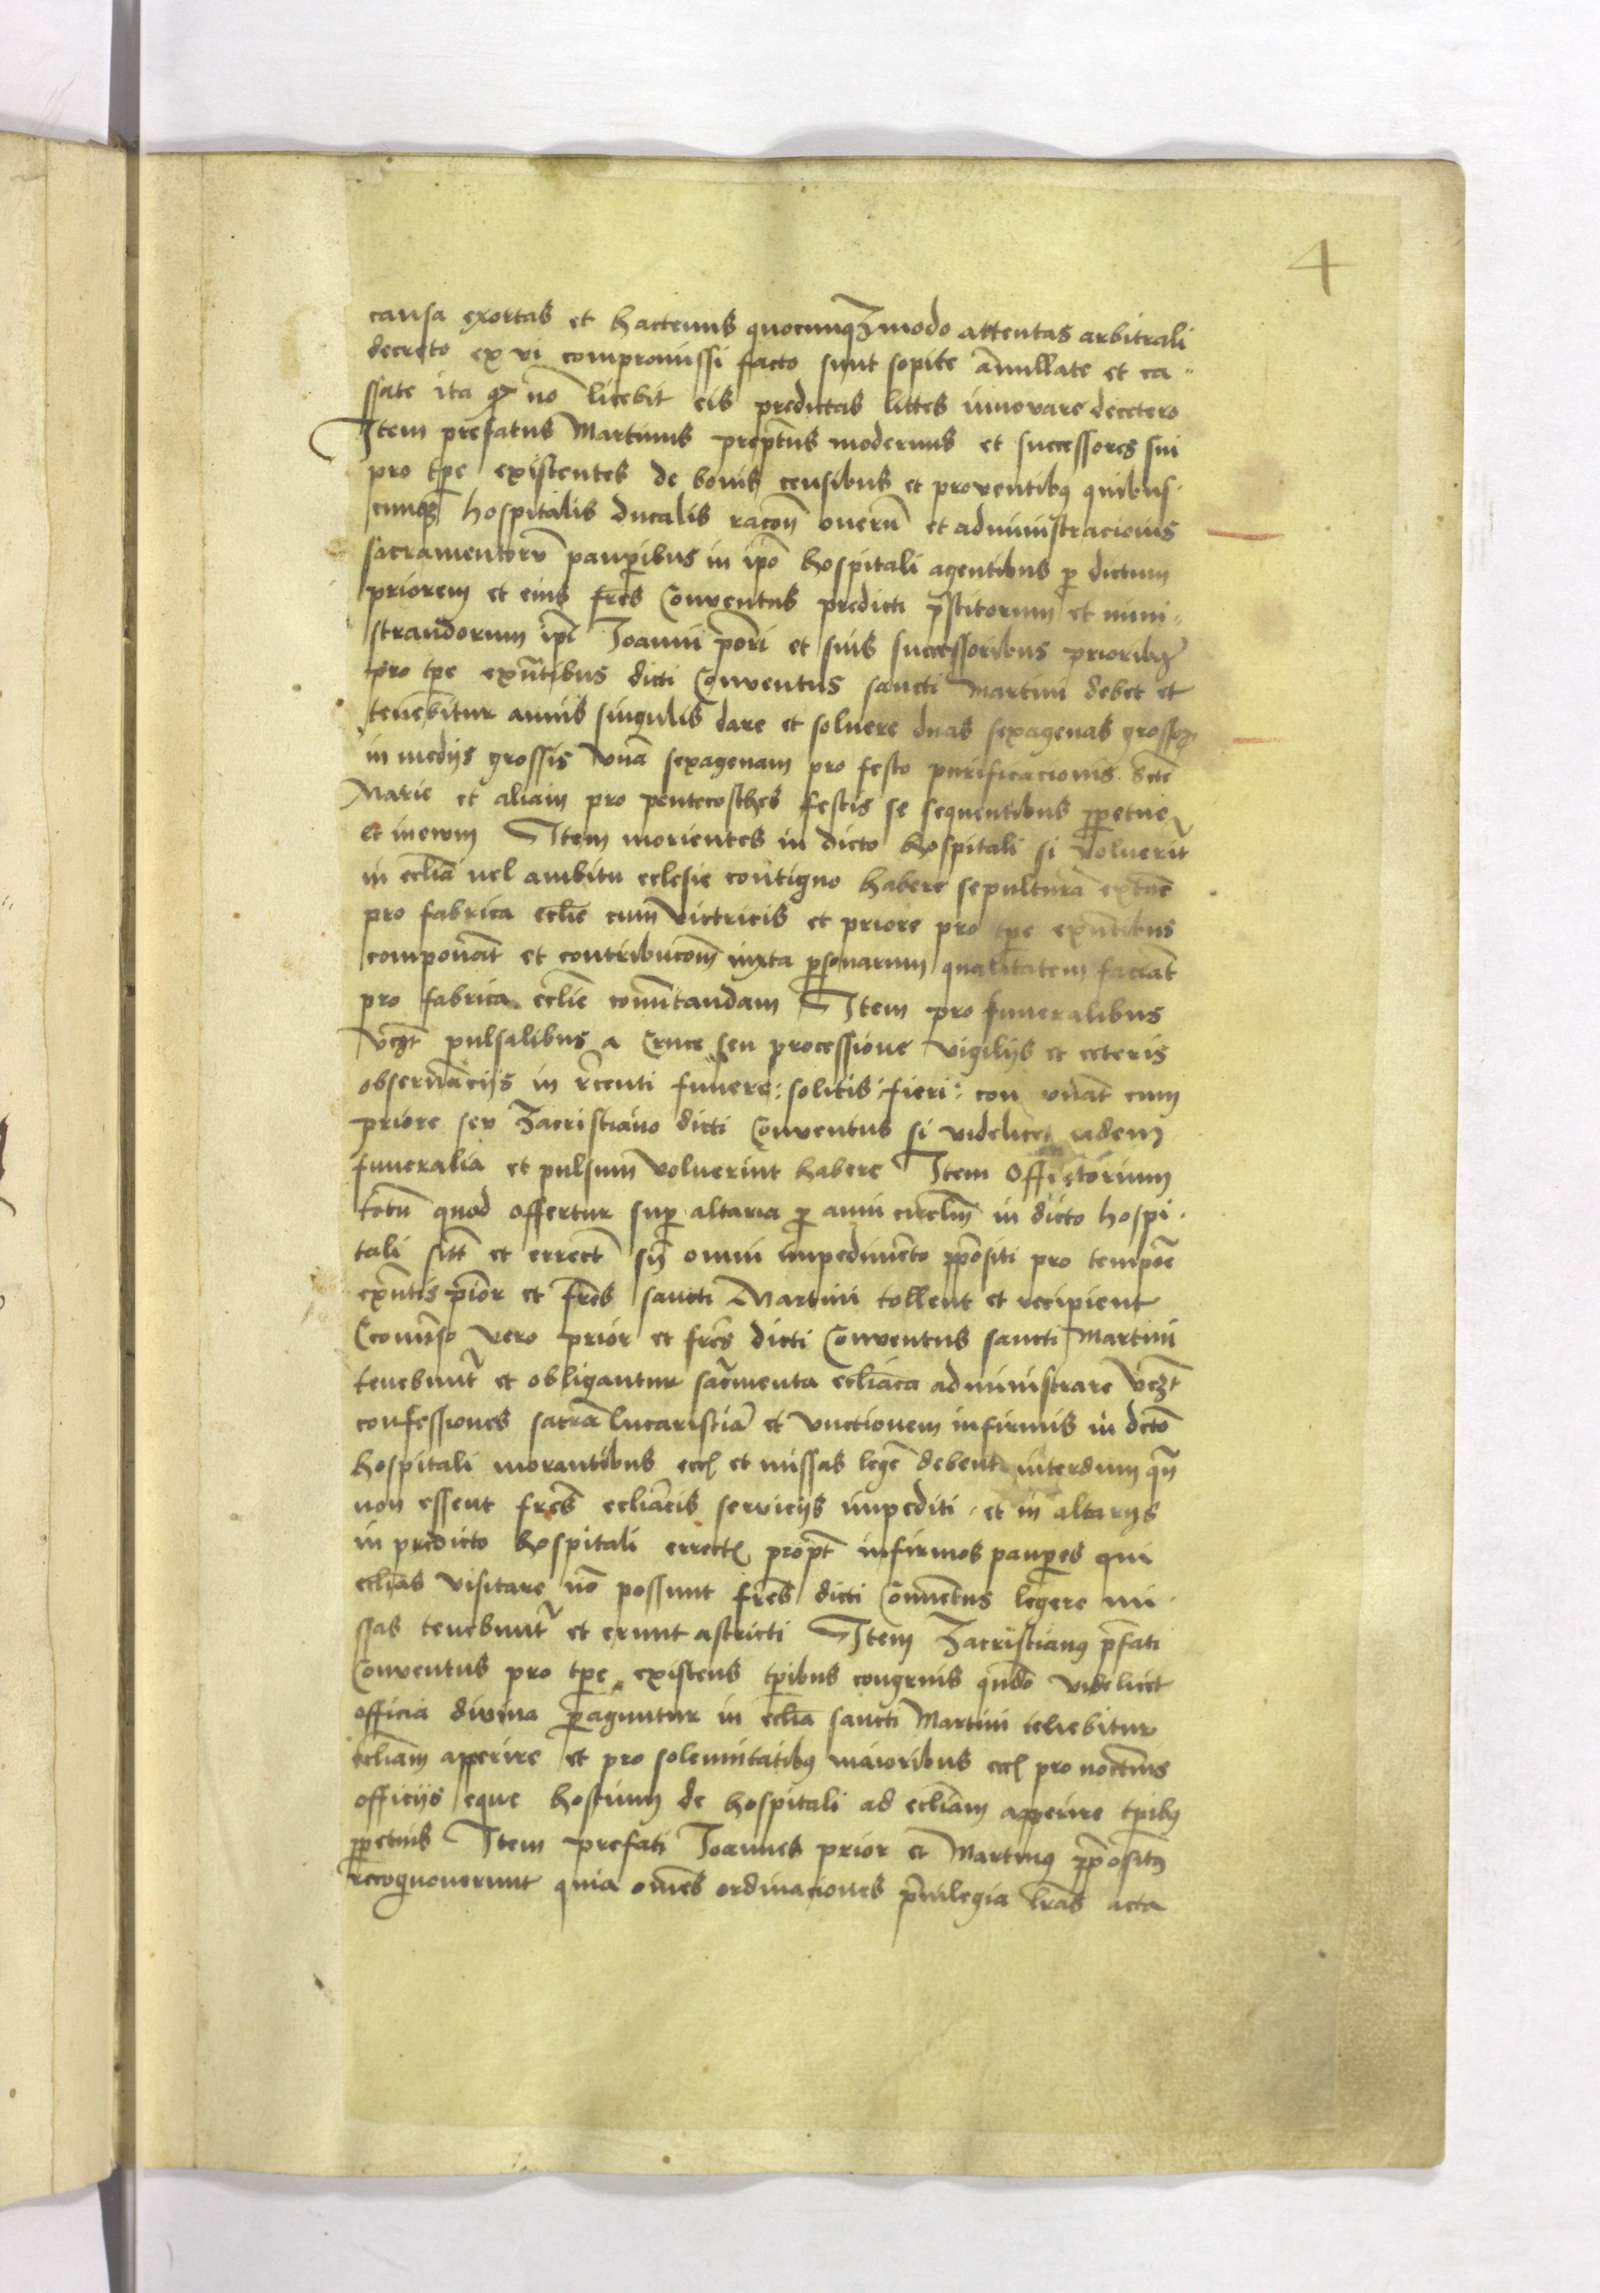 4
causa exortas et hactenus quocunqꝫmodo attentas arbitrali
decreto ex vi compromissi facto sunt sopite ānullate et ca-
ssate ita ꝙ nō licebit eis predictas littes innovare decetero
Item prefatus Martinus prep̄tus modernus et successores sui
pro tp̄e existentes de bonis censibus et proventibꝰ quibus-
cunqꝫ hospitalis ducalis racōn onerū et administracionis
sacramentorū paup̄ibus in ip̄o hospitali agentibus ꝑ dictum
priorem et eius fr̄es Conventus predicti p̄stitorum et mini-
strandorum ip̄i Joanni p̄ori et suis successoribus prioribꝫ
pro tp̄e exn̄tibus dicti Conventus sancti Martini debet et
tenebitur annis singulis dare et solvere duas sexagenas grossoꝝ
in medijs grossis vnā sexagenam pro festo purificacionis Scte
Marie et aliam pro pentecosthes festis se sequentibus ꝑpetue
et in ewm Item morientes in dicto hospitali si voluerīt
in ecliā vel ambitu eclesie contiguo habere sepulturā extūc
pro fabrica eclie cum victricis et priore pro tp̄e exn̄tibus
componāt et contribucōm iuxta ꝑsonarum qualitatem faciāt
pro fabrica eclie com̄tandam Item pro funeralibus
vꝫt pulsalibus a Cruce seu processione vigilijs et ceteris
observācijs in r̄centi funere: solitis: fieri: con vn̄āt cum
priore seu Zacristiano dicti Conventus si videlicet eadem
funeralia et pulsum voluerint habere Item Offertorium
totū quod offertur suꝑ altaria ꝑ anni circlm̄ in dicto hospi-
tali sitt̄ et errect̄ sn̄ omni impedimēto ꝓpositi pro tempore
exn̄tis prior et fr̄es sancti Martini tollent et recipient
Econuerso vero prior et fr̄es dicti Conventus sancti Martini
tenebunt̄ et obligantur sac̄menta ecliāca administrare vꝫt
confessiones sacrā Eucaristiā et vnctionem infirmis in dcto
hospitali morantibus etc̄ et missas legē debent interdum qn̄
non essent fr̄es ecliācis servicijs impediti et in altarijs
in predicto hospitali errectꝭ propt̄ infirmos pauꝑes qui
eclias visitare nō possunt fr̄es dicti Conventus legere mi-
ssas tenebunt̄ et erunt astricti Item Zacristianꝰ p̄fati
Conventus pro tp̄e existens tp̄ibus congruis qn̄do videlicet
officia divina ꝑaguntur in eclia sancti Martini tenebitur
ecliam aperire et pro solennitatibꝰ maioribus etc̄ pro nocturnis
officijs eque hostium de hospitali ad ecliam apperire tp̄ibꝰ
ꝑpetuis Item prefati Joannes prior et Martinꝰ ꝓpositꝰ
recognoverunt quia om̄es ordinaciones p̄vilegia lr̄as acta